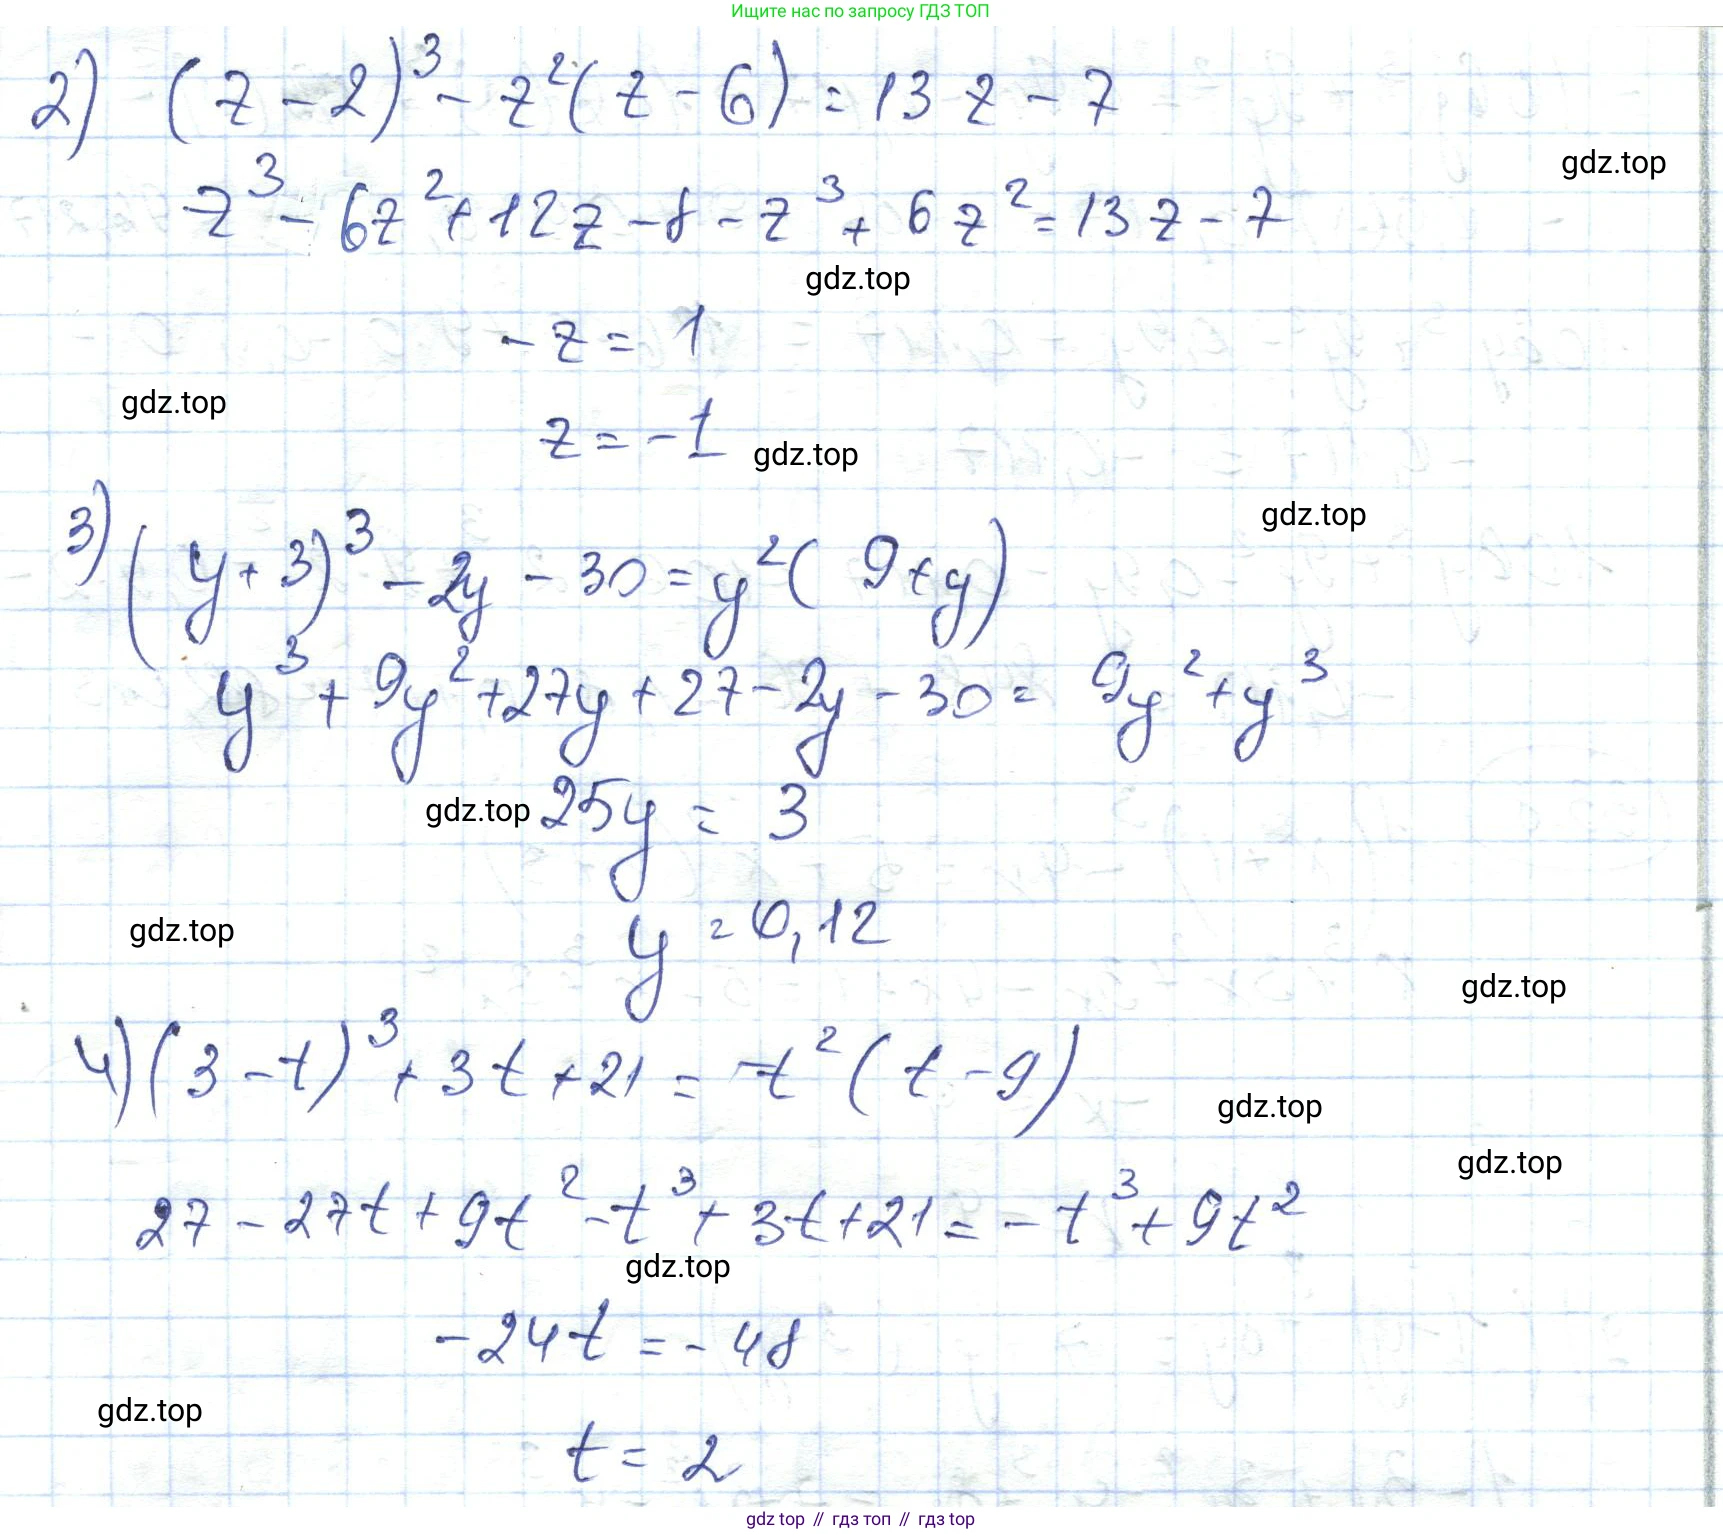 Ищите нас по запросу ГДЗ ТОП
2) (z - 2)³ - z²(z - 6) = 13z - 7
gdz.top
z³ - 6z² + 12z - 8 - z³ + 6z² = 13z - 7
gdz.top
- z = 1
gdz.top
z = -1
gdz.top
3) (y + 3)³ - 2y - 30 = y²(9 + y)
gdz.top
y³ + 9y² + 27y + 27 - 2y - 30 = 9y² + y³
gdz.top
25y = 3
gdz.top
y = 0,12
gdz.top
4) (3 - t)³ + 3t + 21 = -t²(t - 9)
gdz.top
gdz.top
27 - 27t + 9t² - t³ + 3t + 21 = - t³ + 9t²
gdz.top
- 24t = - 48
gdz.top
t = 2
gdz top // гдз топ // гдз top